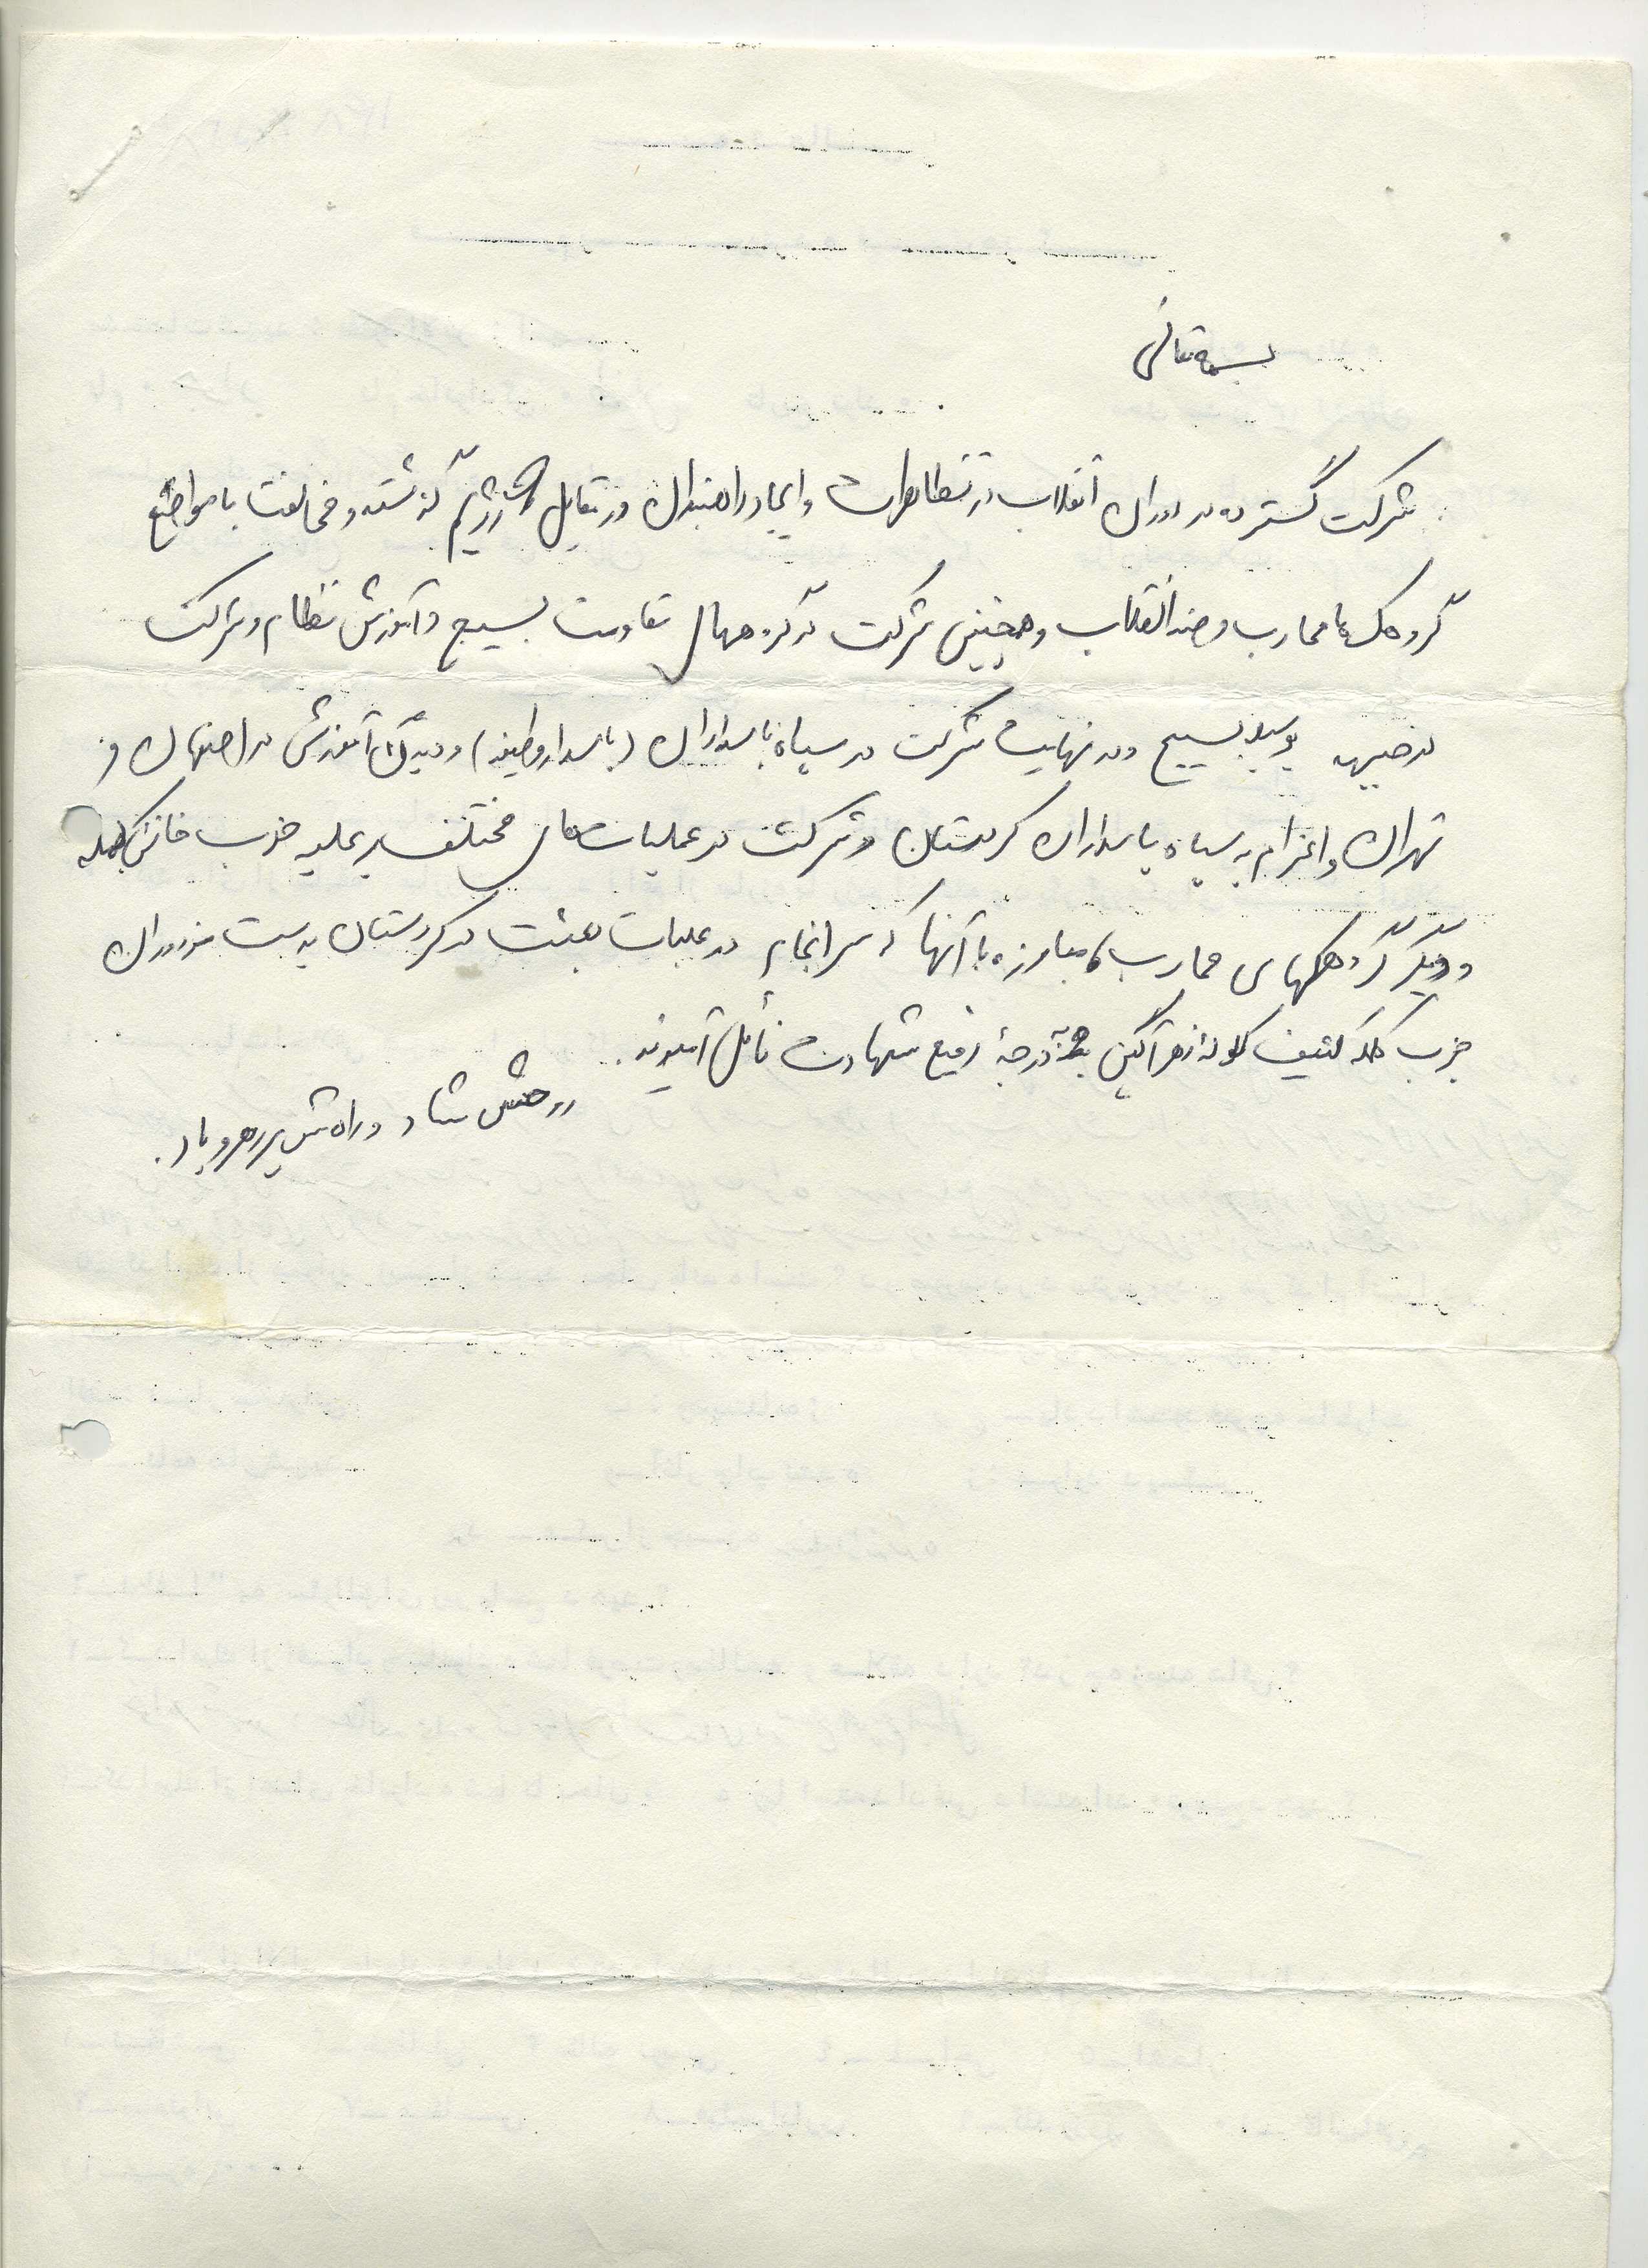 بسمه تعالی
شرکت گسترده در دوران انقلاب در تظاهرات و ایجاد راهبندان در مقابل رژیم گذشته و مخالفت با مواضع
گروهک ها محارب و ضد انقلاب و همچنین شرکت در گروههای مقاومت بسیج و آموزش نظام و شرکت
در جبهه بوسیله بسیج و در نهایت شرکت در سپاه پاسداران (پاسدار وظیفه) و دیدن آموزش در اصفهان و
تهران و اعزام به سپاه پاسداران کردستان و شرکت در عملیات های مختلف بر علیه حزب خائن کومله
و دیگر گروهکهای محارب مبارزه با آنها که سرانجام در عملیات بعثت در کردستان بدست مزدوران
حزب کثیف گلوله زهرآگین به درجهٔ رفیع شهادت نائل آمدند.
روحش شاد و راهش پر رهرو باد.